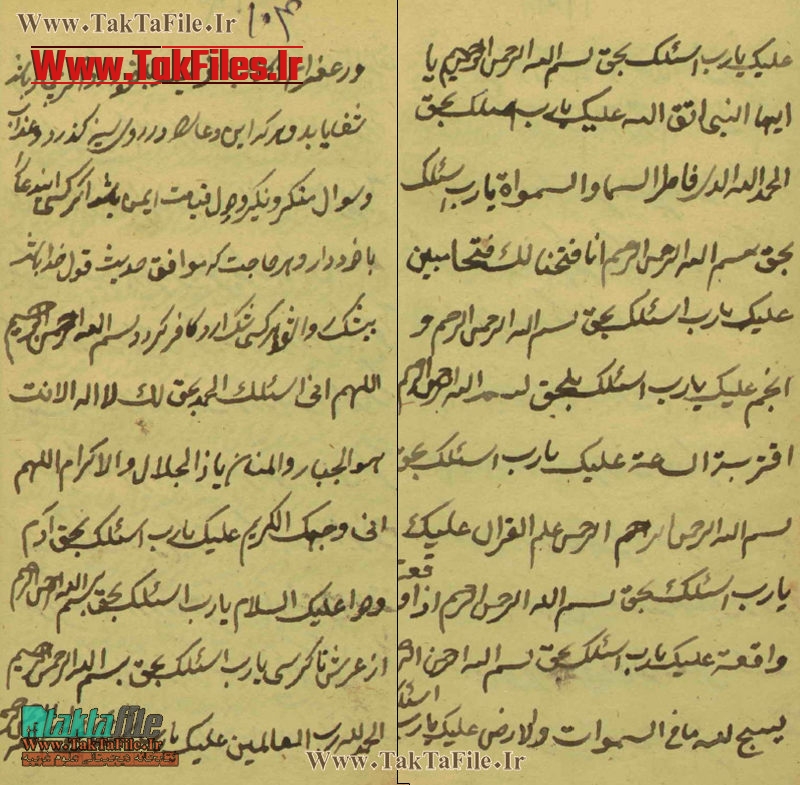 www.TakTaFile.Ir
۱۰۳
www.TakFiles.Ir
علیک یا رب اسئلک بحق بسم الله الرحمن الرحیم یا
ایها النبی اتق الله علیک یا رب اسئلک بحق
الحمد الله الذی فاطر السما و السمواة یا رب اسئلک
بحق بسم الله الرحمن الرحیم انا فتحنا لک فتحا مبین
علیک یا رب اسئلک بحق بسم الله الرحمن الرحیم و
انجم علیک یا رب اسئلک بحق بسم الله الرحمن الرحیم
اقتربة الساعة علیک یا رب اسئلک بحق
بسم الله الرحمن الرحیم الرحمن علم القران علیک
یا رب اسئلک بحق بسم الله الرحمن الرحیم اذا وقعة
واقعة علیک یا رب اسئلک بحق بسم الله الرحمن الرحیم
یسبح لله ما فی السموات و الارض علیک یا رب اسئلک
و زعفران
شفا یابد و هر که این دعا را در روی سینه گذارد و عذاب
و سوال منکر و نکیر و هول قیامت ایمن باشد اگر کسی این دعا را
با خود دارد و هر حاجت که موافق حدیث قول خدا باشد
بیشک و هر کسی شک ارد کافر گردد بسم الله الرحمن الرحیم
اللهم انی اسئلک الحمد بحق لک لا اله الا انت
هو الجبار و المنان یا ذالجلال و الاکرام اللهم
انی وجهک الکریم علیک یا رب اسئلک بحق آدم
و حوا علیک السلام یا رب اسئلک بحق بسم الله الرحمن الرحیم
از عرش تا کرسی یا رب اسئلک بحق بسم الله الرحمن الرحیم
الحمد لله رب العالمین علیک یا رب
taktafile
www.TakTaFile.Ir
www.TakTaFile.Ir